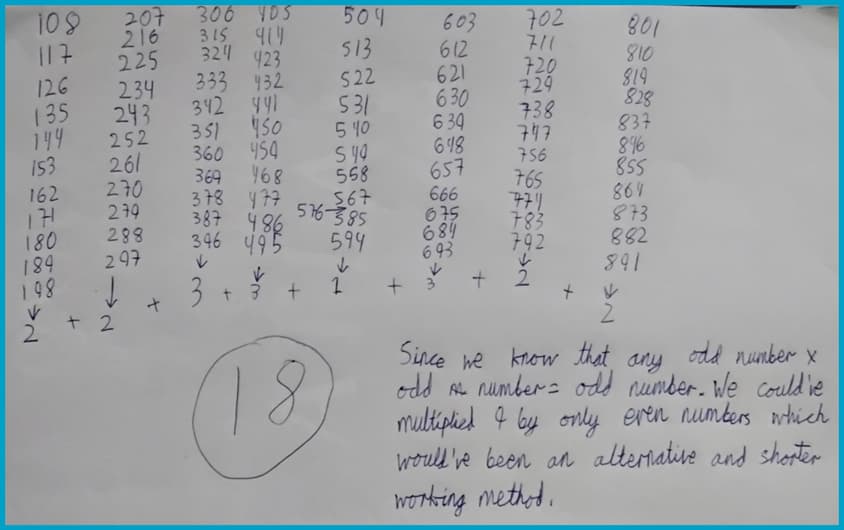 108
117
126
135
144
153
162
171
180
189
198
207
216
225
234
243
252
261
270
279
288
297
306
315
324
333
342
351
360
369
378
387
396
405
414
423
432
441
450
459
468
477
486
495
504
513
522
531
540
549
558
567
576→
585
594
603
612
621
630
639
648
657
666
675
684
693
702
711
720
729
738
747
756
765
774
783
792
801
810
819
828
837
846
855
864
873
882
891
2 + 2 + 3 + 3 + 1 + 3 + 2 + 2
18
Since we know that any odd number x
odd number = odd number. We could've
multiplied 9 by only even numbers which
would've been an alternative and shorter
working method.